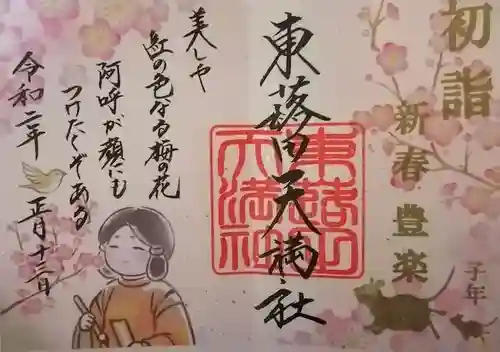 初詣
新春 豊楽
子年
東蕗田天満社
東蕗田
天満社
美しや
紅の色なる梅の花
阿呼が顔にも
つけたくぞある
令和二年
正月十三日